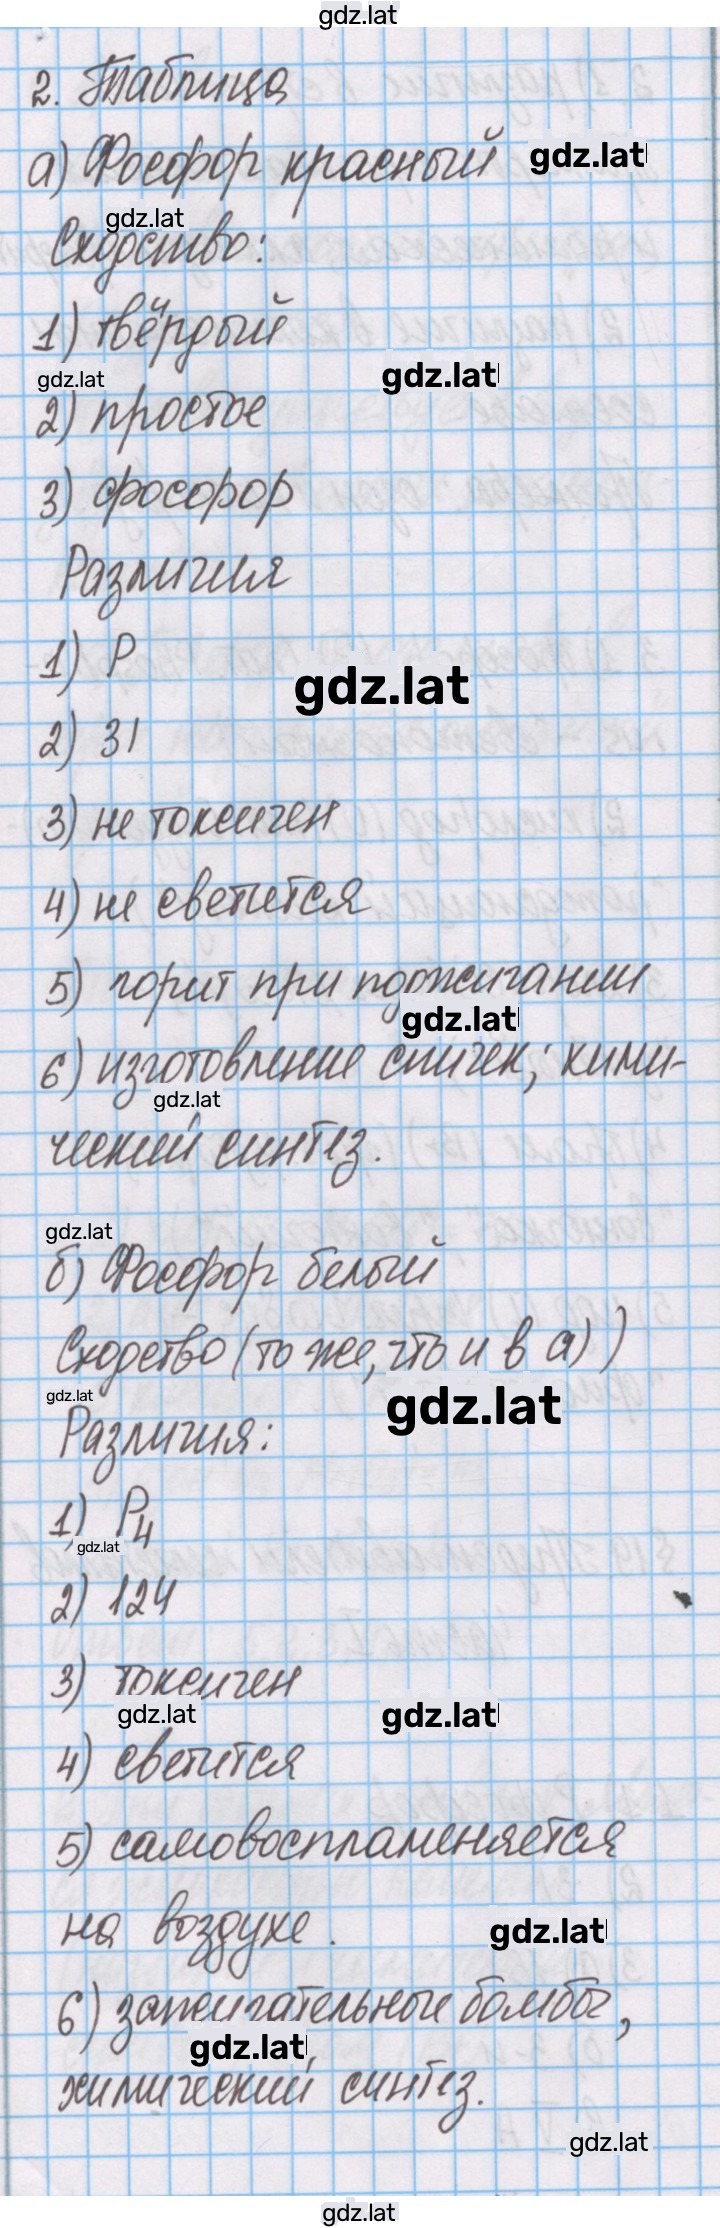 gdz.lat
2. Таблица
а) Фосфор красный gdz.lat
gdz.lat
Сходство:
1) твёрдый
gdz.lat gdz.lat
2) простое
3) фосфор
Различия
1) P
gdz.lat
2) 31
3) не токсичен
4) не светится
5) горит при поджигании
gdz.lat
6) изготовление спичек; хими-
gdz.lat
ческий синтез.
gdz.lat
б) Фосфор белый
Сходство (то же, что и в а))
gdz.lat gdz.lat
Различия:
1) P4
gdz.lat
2) 124
3) токсичен
gdz.lat gdz.lat
4) светится
5) самовоспламеняется
на воздухе.
gdz.lat
6) зажигательные бомбы,
gdz.lat
химический синтез.
gdz.lat
gdz.lat